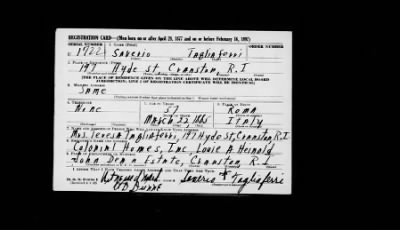 REGISTRATION CARD—(Men born on or after April 28, 1877 and on or before February 16, 1897)
SERIAL NUMBER 1. NAME (Print) ORDER NUMBER
U 1722 Saverio Tagliaferri
2. PLACE OF RESIDENCE (Print)
197 Hyde St. Cranston, R.I
[THE PLACE OF RESIDENCE GIVEN ON THE LINE ABOVE WILL DETERMINE LOCAL BOARD
JURISDICTION; LINE 2 OF REGISTRATION CERTIFICATE WILL BE IDENTICAL]
3. MAILING ADDRESS
Same
4. TELEPHONE 5. AGE IN YEARS 6. PLACE OF BIRTH
None 57 Roma
DATE OF BIRTH
March 1885 Italy
7. NAME AND ADDRESS OF PERSON WHO WILL ALWAYS KNOW YOUR ADDRESS
Mrs. Teresa Tagliaferri, 197 Hyde St, Cranston R.I
8. EMPLOYER'S NAME AND ADDRESS
Colonial Homes, Inc. Louie A.
9. PLACE OF EMPLOYMENT OR BUSINESS
John Dean Estate, Cranston, R.I
I AFFIRM THAT I HAVE VERIFIED ABOVE ANSWERS AND THAT THEY ARE TRUE.
D. S. S. Form 1 Saverio Tagliaferri